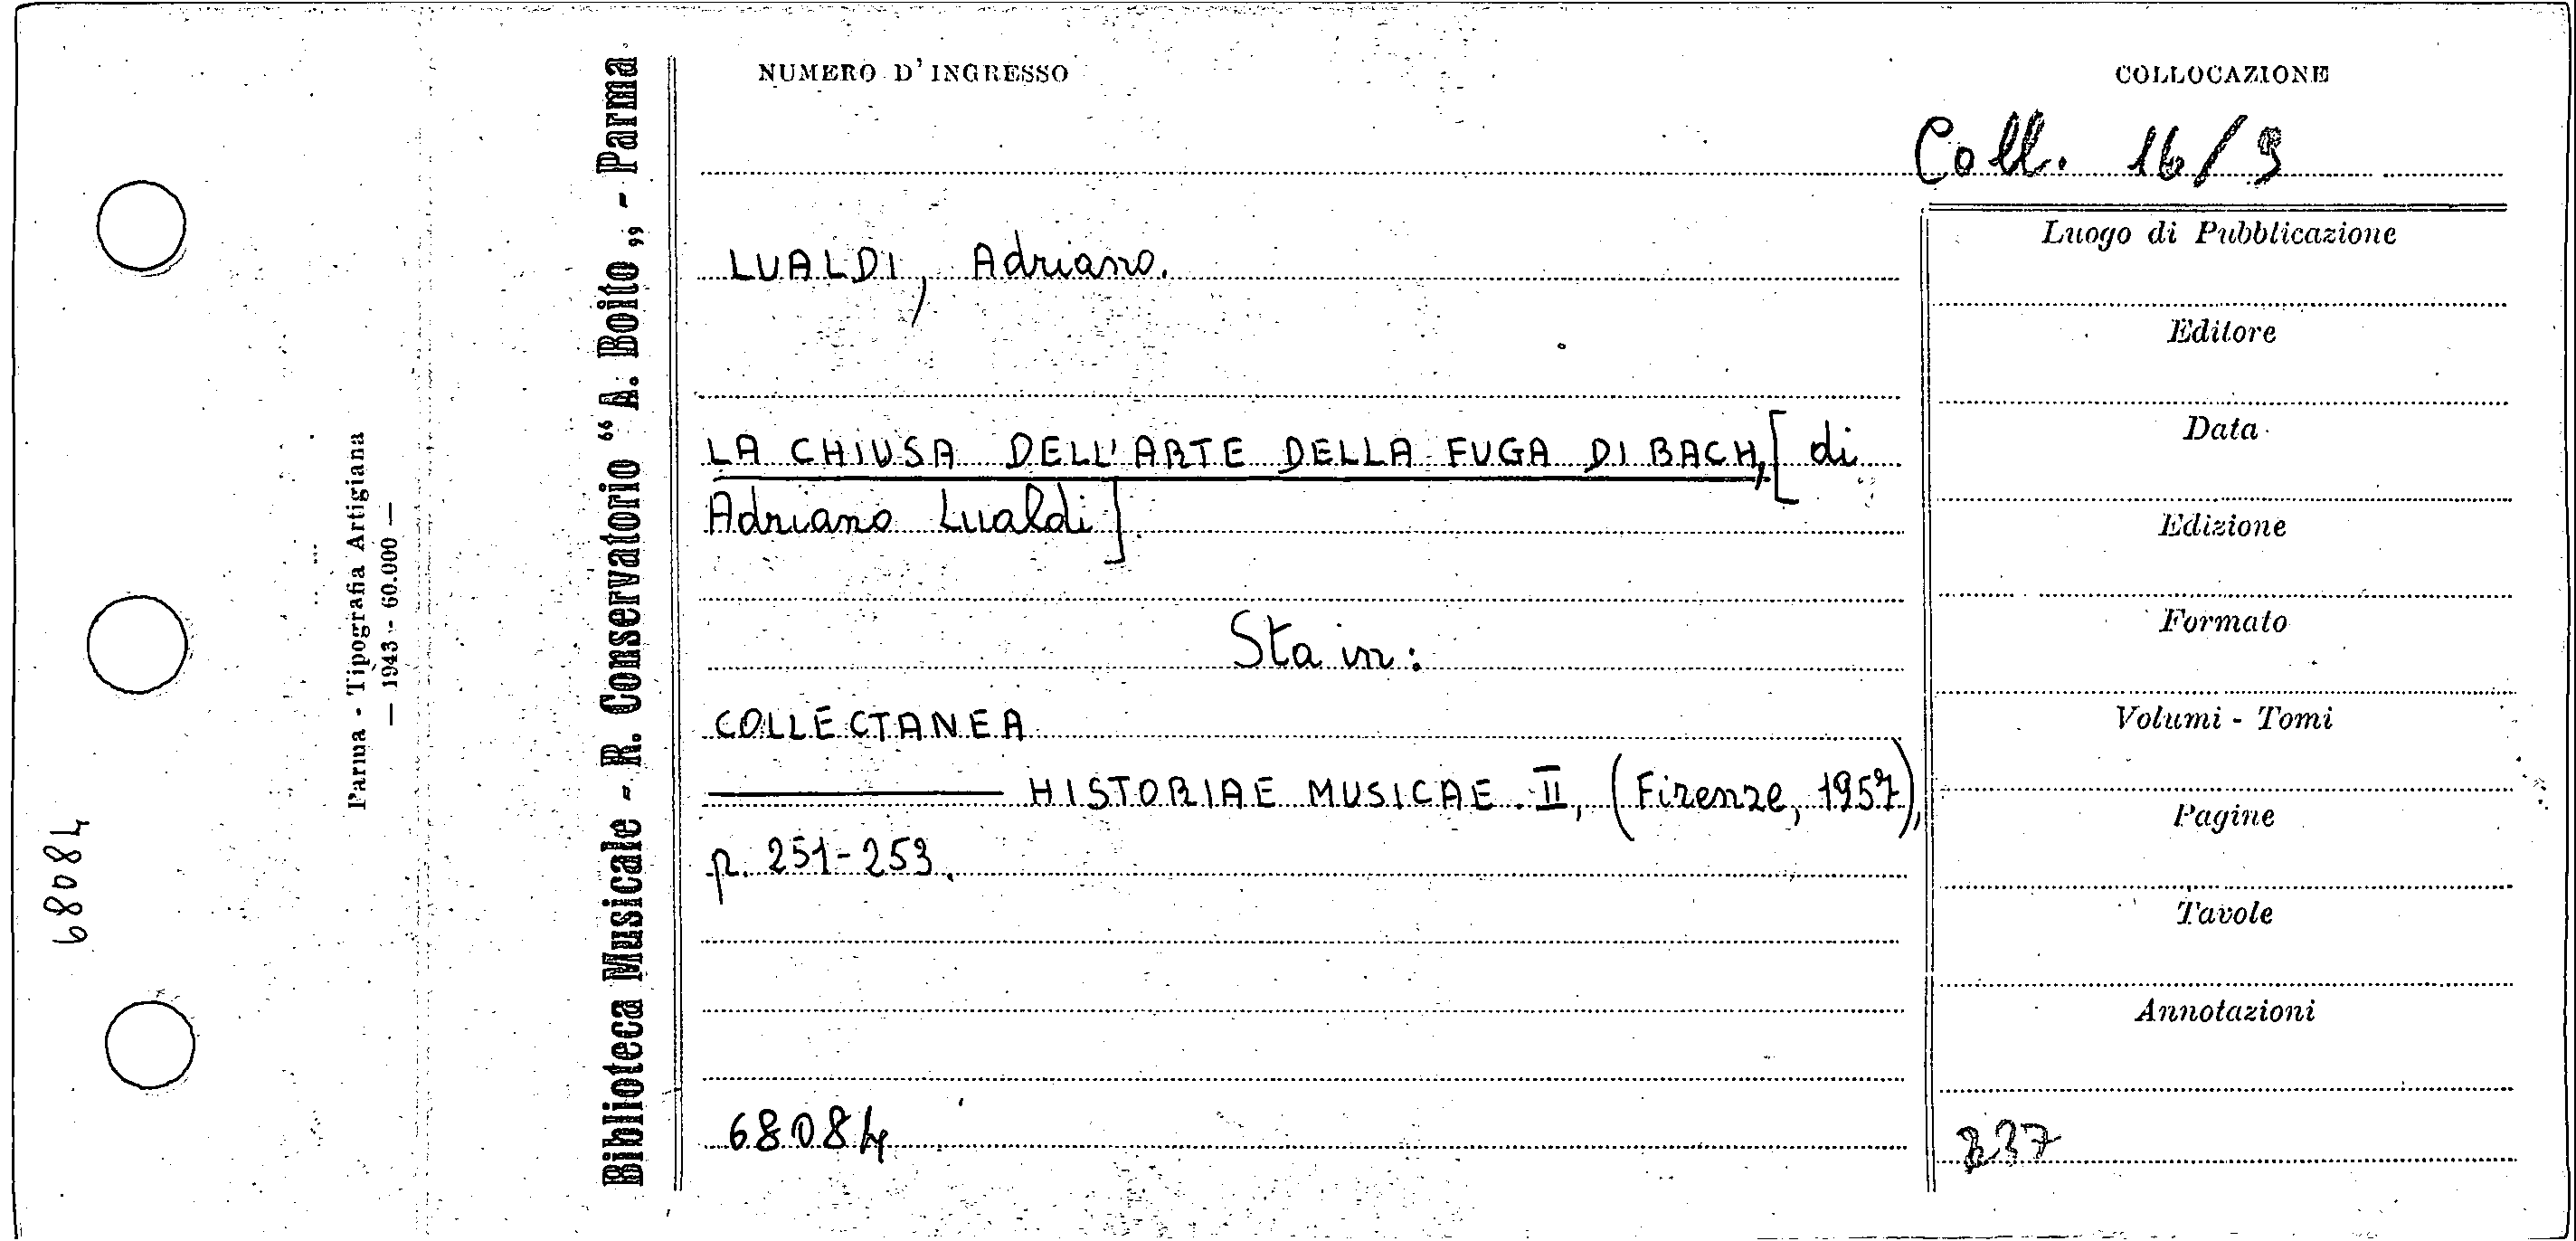 NUMERO D'INGRESSO
COLLOCAZIONE
Coll. 16/9
LUALDI, Adriano.
LA CHIUSA DELL'ARTE DELLA FUGA DI BACH, [di
Adriano Lualdi]
Sta in:
COLLECTANEA
——— HISTORIAE MUSICAE II, (Firenze, 1957),
p. 251-253.
68084
Luogo di Pubblicazione
Editore
Data
Edizione
Formato
Volumi - Tomi
Pagine
Tavole
Annotazioni
Biblioteca Musicale - R. Conservatorio “A. Boito„ - Parma
Parma - Tipografia Artigiana
— 1943 - 60.000 —
68084